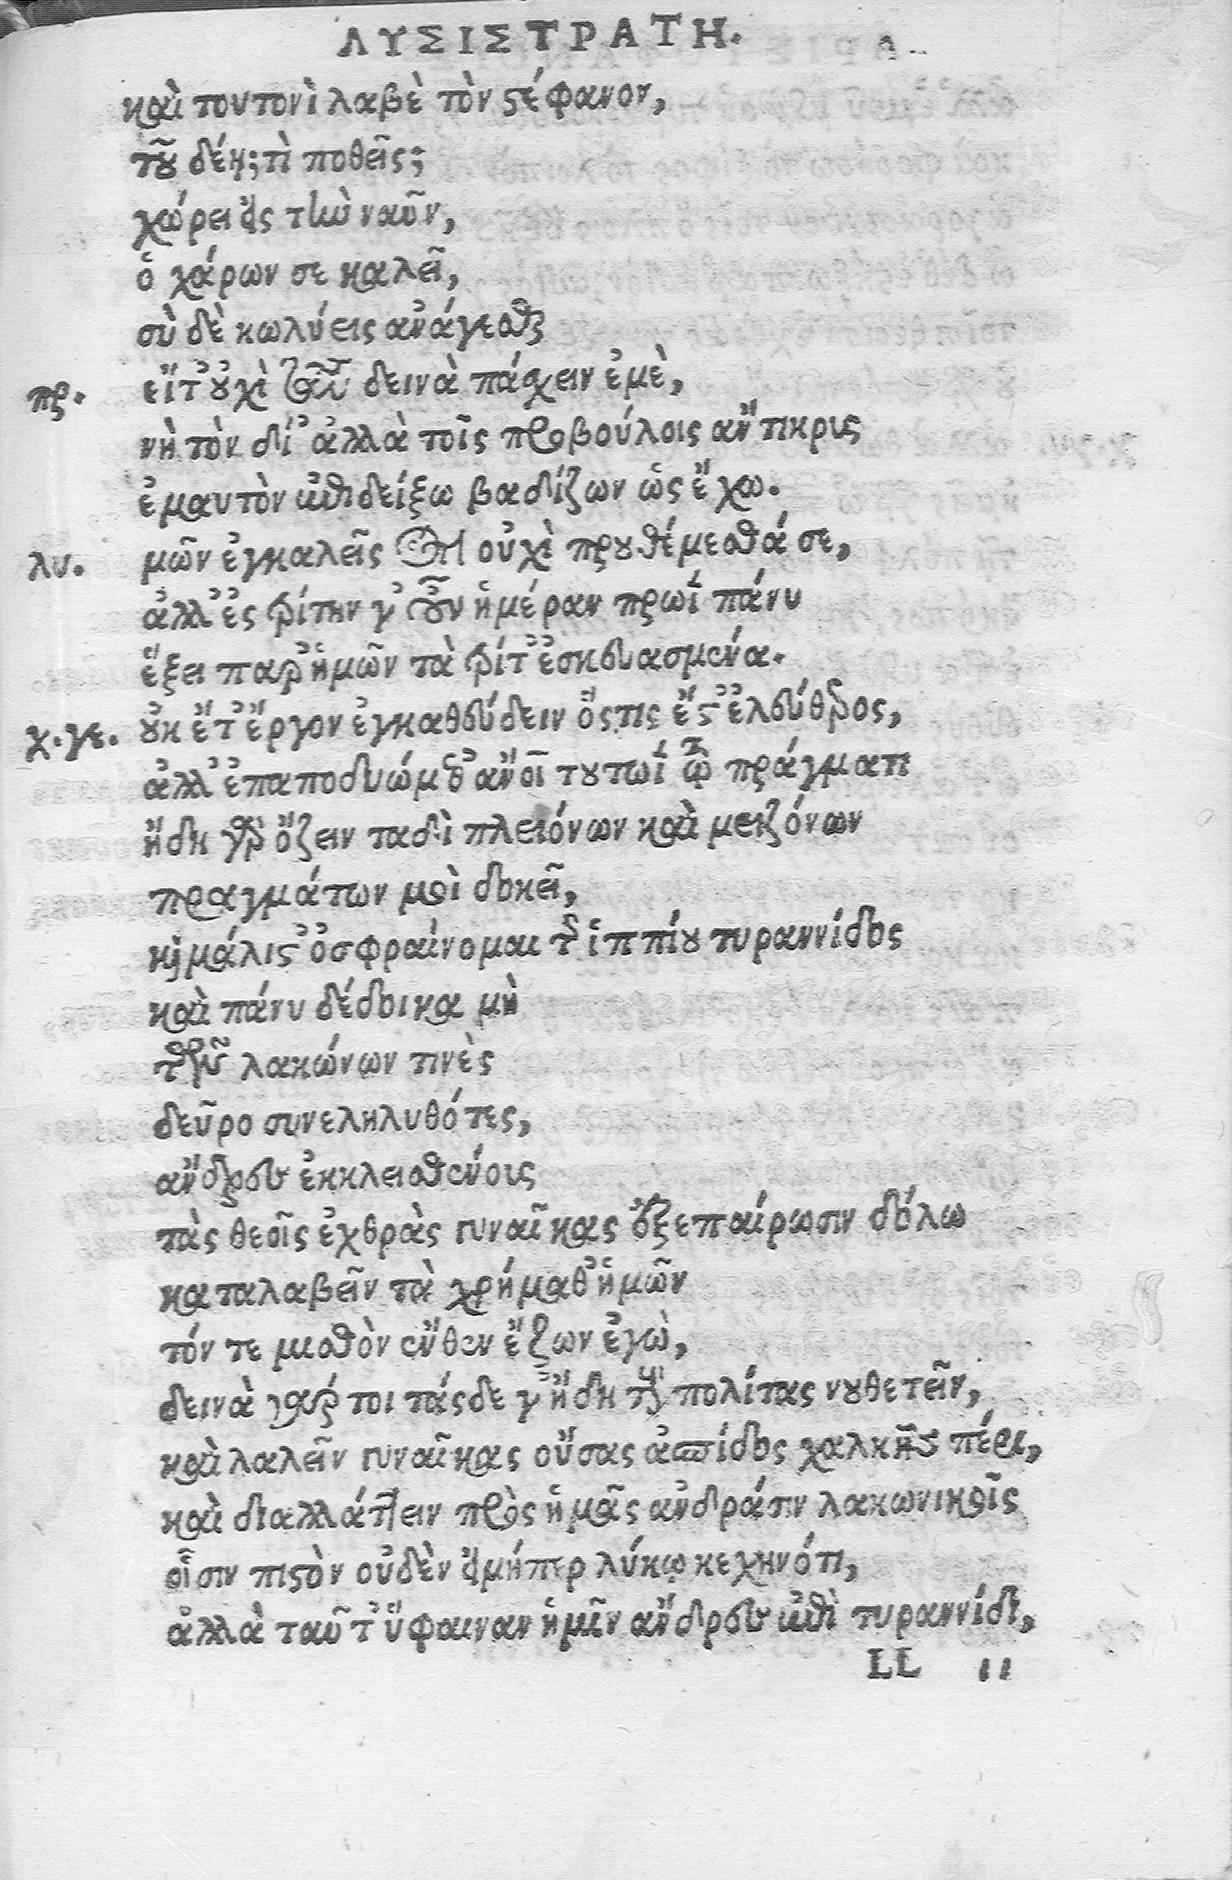 ΛΥΣΙΣΤΡΑΤΗ.
καὶ τουτονὶ λαβὲ τὸν ϛέφανον,
τοῦ δέῃ; τὶ ποθεῖς;
χώρει εἰς τὴν ναῦν,
ὁ χάρων σε καλεῖ,
σὺ δὲ κωλύεις ἀνάγεσθαι
πρ. εἶτ᾽ οὐχὶ ταῦτα δεινὰ πάσχειν ἐμὲ,
νὴ τὸν δί᾽ ἀλλὰ τοῖς προβούλοις ἄντικρυς
ἐμαυτὸν ἐπιδείξω βαδίζων ὡς ἔχω.
λυ. μῶν ἐγκαλεῖς ὅτι οὐχὶ προυθέμεσθά σε,
ἀλλ᾽ ἐς τρίτην γ᾽ οὖν ἡμέραν πρωῒ πάνυ
ἥξει παρ᾽ ἡμῶν τὰ τρίτ᾽ ἐσκευασμένα.
χ.γε. οὐκ ἔτ᾽ ἔργον ἐγκαθεύδειν ὅςτις ἔϛ᾽ ἐλεύθερος,
ἀλλ᾽ ἐπαποδυώμεθ᾽ ἄνοι τουτωῒ τῷ πράγματι
ἤδη γὰρ ὄζειν ταδὶ πλειόνων καὶ μειζόνων
πραγμάτων μοὶ δοκεῖ,
καὶ μάλιϛ᾽ ὀσφραίνομαι τῆς ἱππίου τυραννίδος
καὶ πάνυ δέδοικα μὴ
τῶν λακώνων τινὲς
δεῦρο συνεληλυθότες,
ἄνδρες ἐκκλεισθένοις
τὰς θεοῖς ἐχθρὰς γυναῖκας ἐξεπαίρωσιν δόλω
καταλαβεῖν τὰ χρήμαθ᾽ ἡμῶν
τόν τε μισθὸν ἔνθεν ἔζων ἐγὼ,
δεινὰ γάρ τοι τάςδε γ᾽ ἤδη τοὺς πολίτας νουθετεῖν,
καὶ λαλεῖν γυναῖκας οὔσας ἀσπίδος χαλκῆς πέρι,
καὶ διαλλάττειν πρὸς ἡμᾶς ἀνδράσιν λακωνικοῖς
οἷσιν πιϛὸν οὐδὲν εἰμήπερ λύκῳ κεχηνότι,
ἀλλὰ ταῦτ᾽ ὕφαιναν ἡμῖν ἄνδρες ἐπὶ τυραννίδι,
LL ii